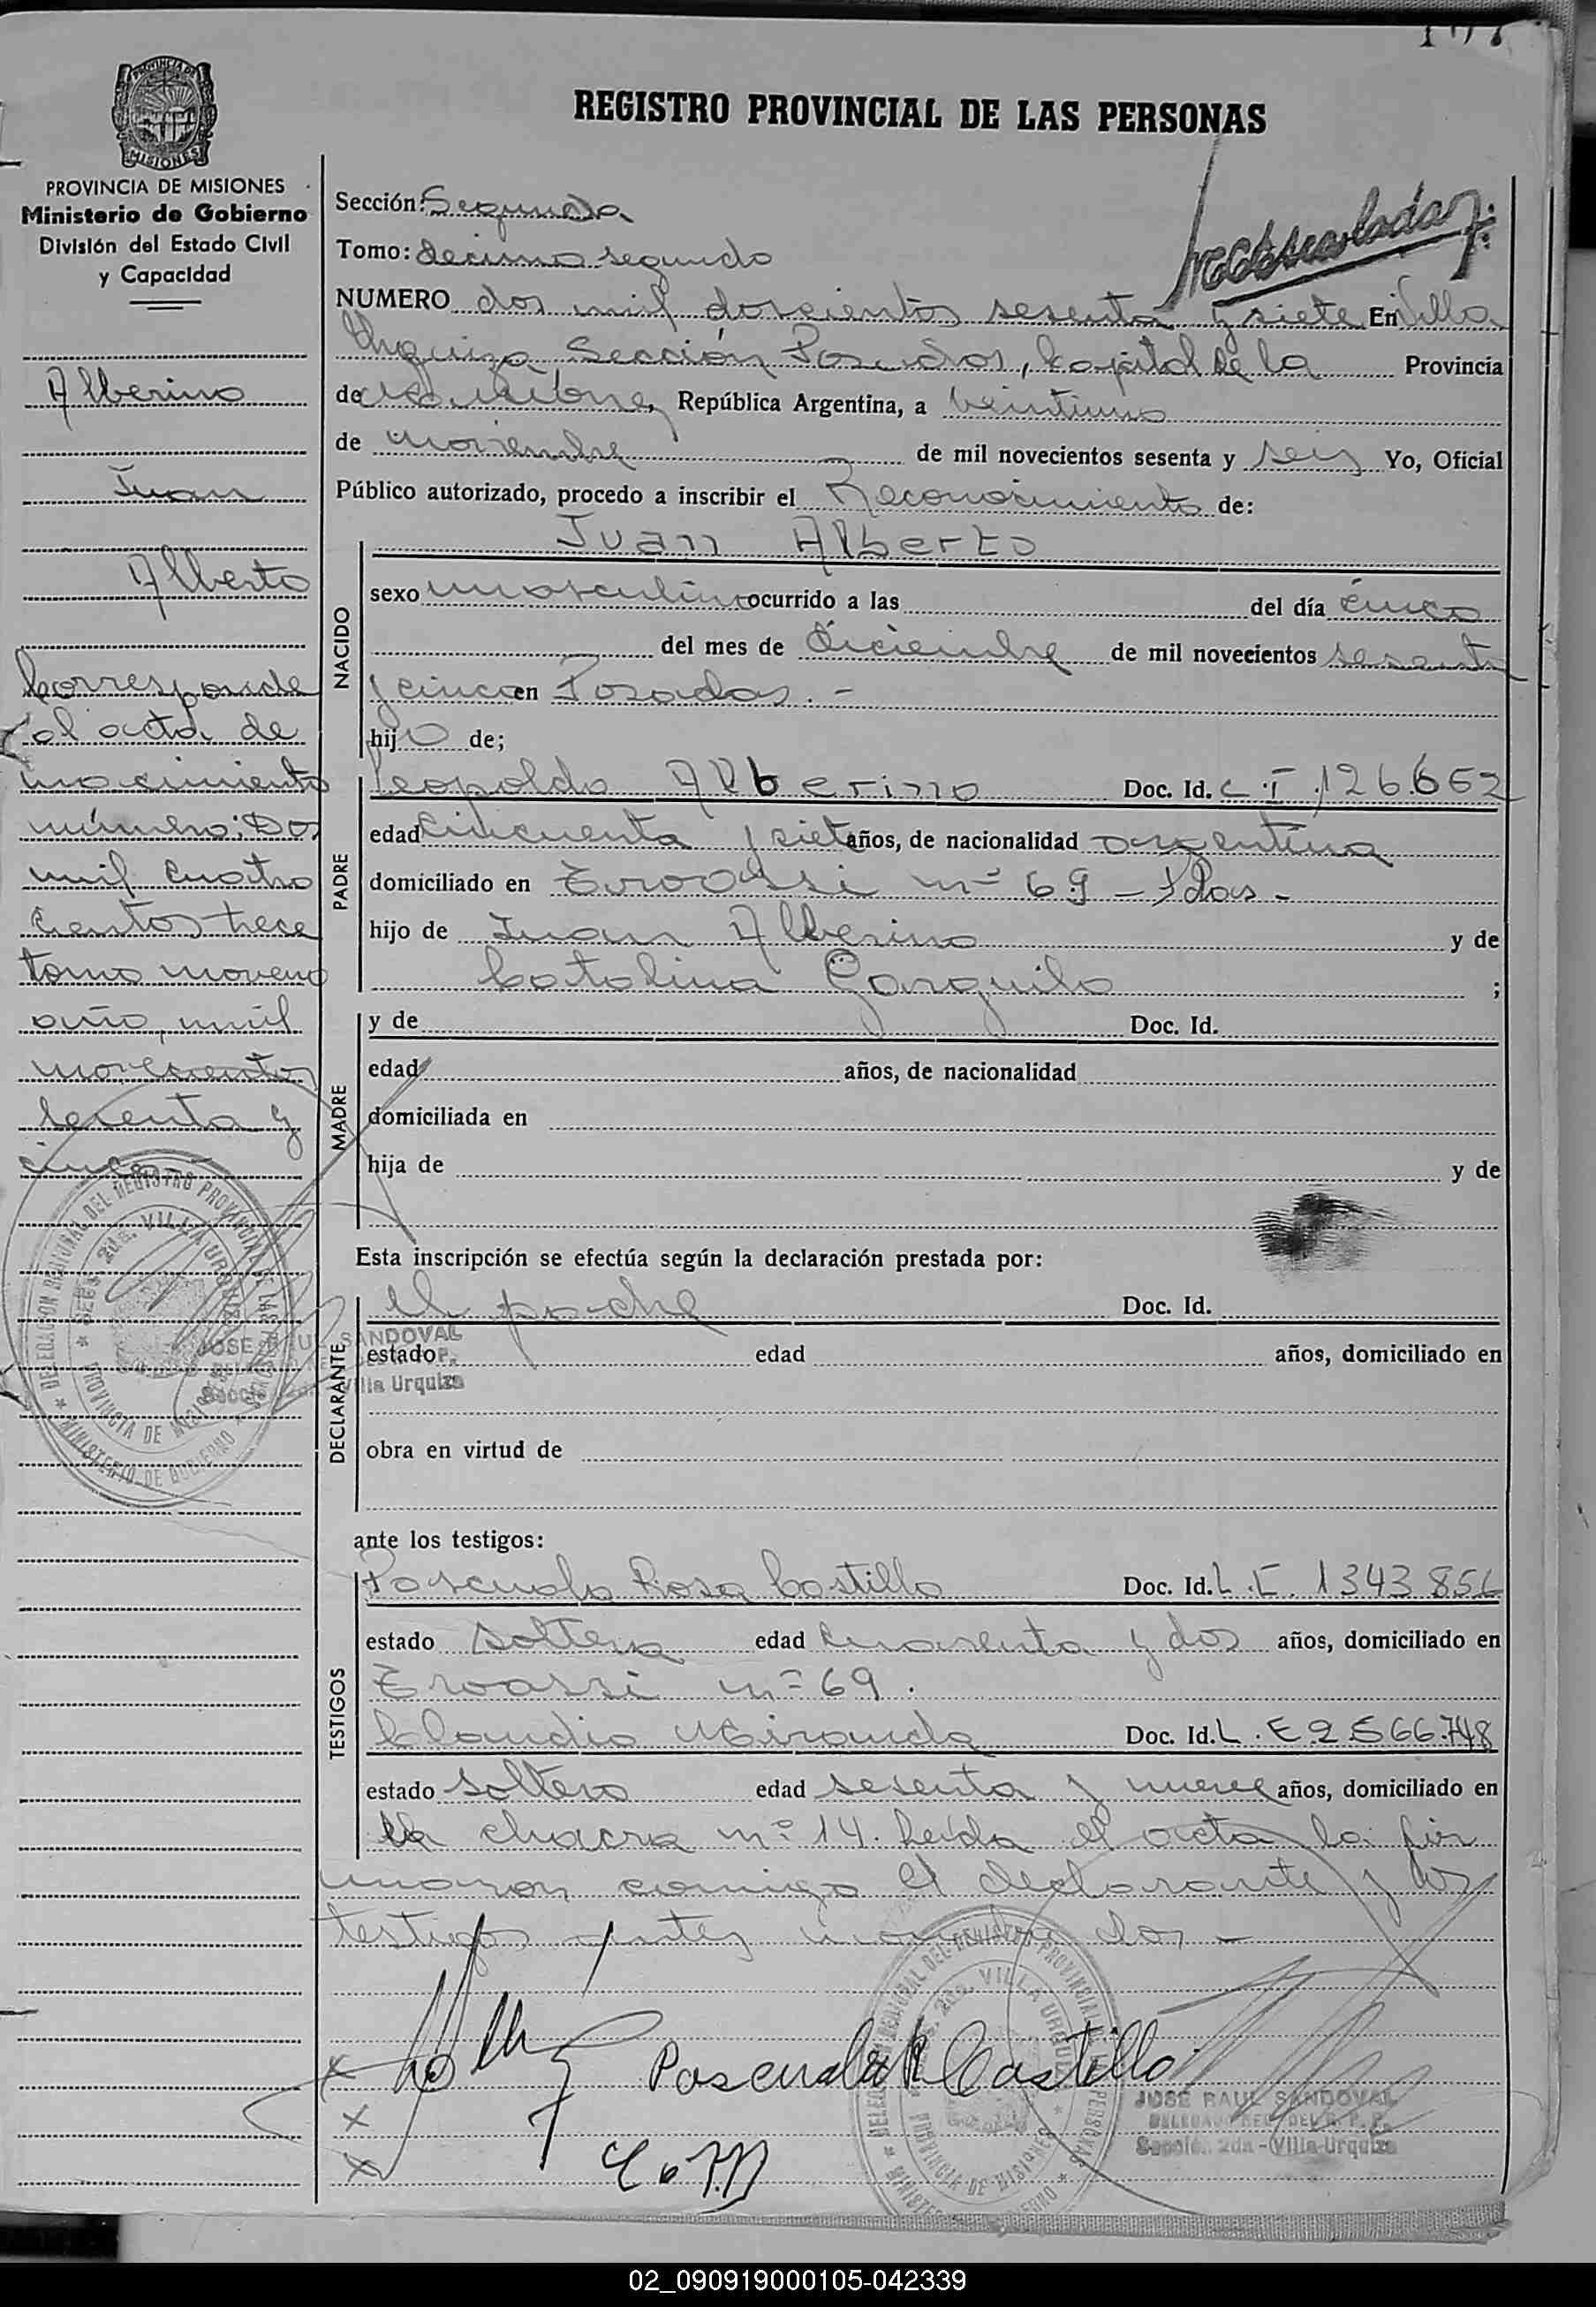 REGISTRO PROVINCIAL DE LAS PERSONAS
PROVINCIA DE MISIONES
PROVINCIA DE MISIONES
Ministerio de Gobierno
División del Estado Civil
y Capacidad
Alberino
Juan
Alberto
Corresponde
al acta de
nacimiento
número: Dos
mil cuatro
cientos trece
tomo noveno
año, mil
novecientos
sesenta y
cinco
DELEGACION REGIONAL DEL REGISTRO PROVINCIAL DE LAS PERSONAS
SECC. 2da. VILLA URQUIZA
PROVINCIA DE MISIONES
MINISTERIO DE GOBIERNO
JOSE RAUL SANDOVAL
Villa Urquiza
Sección: Segunda
Tomo: decimo segundo
NUMERO dos mil doscientos sesenta y siete En Villa
Urquiza Sección Posadas, Capital de la Provincia
de Misiones, República Argentina, a veintiuno
de noviembre de mil novecientos sesenta y seis Yo, Oficial
Público autorizado, procedo a inscribir el Reconocimiento de:
NACIDO
Juan Alberto
sexo masculino ocurrido a las del día cinco
del mes de diciembre de mil novecientos sesenta
y cinco en Posadas. -
hijo de;
PADRE
Leopoldo Alberino Doc. Id. C.I. 126.662
edad cincuenta y siete años, de nacionalidad argentina
domiciliado en nº 69 - Pdas -
hijo de Juan Alberino y de
Catalina Garguilo ;
MADRE
y de Doc. Id.
edad años, de nacionalidad
domiciliada en
hija de y de
Esta inscripción se efectúa según la declaración prestada por:
DECLARANTE
el padre Doc. Id.
estado edad años, domiciliado en
obra en virtud de
ante los testigos:
TESTIGOS
Pascuala Rosa Castillo Doc. Id. 1343856
estado soltera edad cuarenta y dos años, domiciliado en
nº 69.
Claudio Miranda Doc. Id. L.E 2566.748
estado soltero edad sesenta y nueve años, domiciliado en
la chacra nº 14. Leída el acta la fir
maron conmigo el declarante y los
testigos antes -
Pascuala R Castillo
DELEGACION REGIONAL DEL REGISTRO PROVINCIAL DE LAS PERSONAS
SECC. 2da. VILLA URQUIZA
PROVINCIA DE MISIONES
MINISTERIO DE GOBIERNO
JOSÉ RAUL SANDOVAL
DELEGADO REG. DEL R. P. P.
Sección 2da - Villa Urquiza
02_090919000105-042339